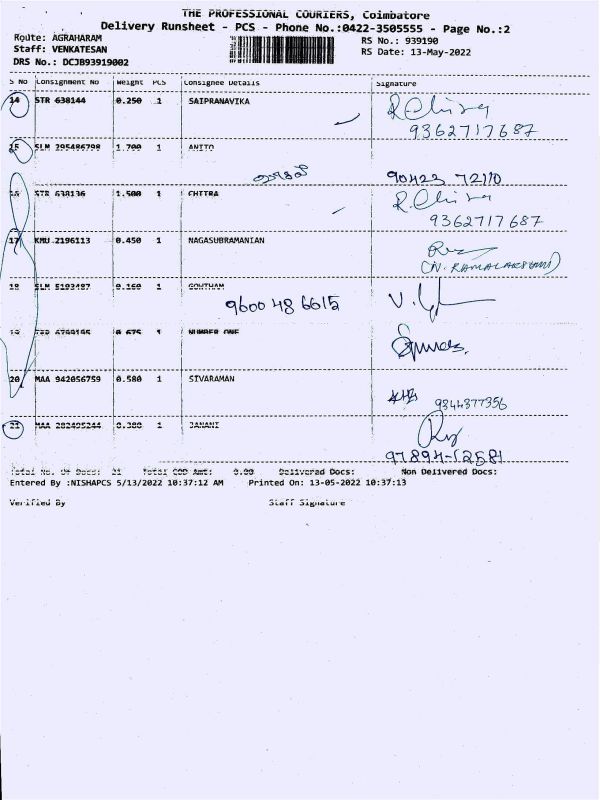 THE PROFESSIONAL COURIERS, Coimbatore
Delivery Runsheet - PCS - Phone No.:0422-3505555 - Page No.:2
Route: AGRAHARAM RS No.: 939190
Staff: VENKATESAN RS Date: 13-May-2022
DRS No.: DCJB93919002
S No Consignment No Weight PCS Consignee Details Signature
14 STR 638144 0.250 1 SAIPRANAVIKA
9362717687
15 SLM 295486798 1.700 1 ANITO
90423 72110
16 STR 638136 1.500 1 CHITRA
9362717687
17 KMU 2196113 0.450 1 NAGASUBRAMANIAN
(N. RAMALAKSHMI)
18 SLM 5193487 0.160 1 GOWTHAM
9600 48 6615
19 0.675 1 NUMBER ONE
20 MAA 942056759 0.580 1 SIVARAMAN
9344377356
21 MAA 282495244 0.380 1 JANANI
97894-12581
Total No. Of Docs: 21 Total COD Amt: 0.00 Delivered Docs: Non Delivered Docs:
Entered By :NISHAPCS 5/13/2022 10:37:12 AM Printed On: 13-05-2022 10:37:13
Verified By Staff Signature